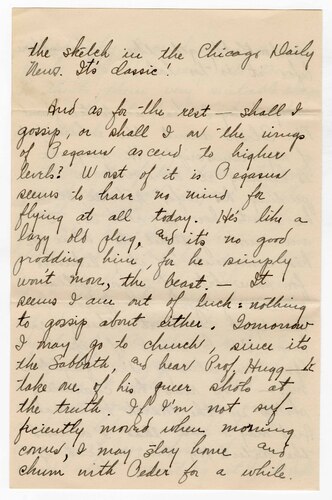 the sketch in the Chicago Daily
News. It's classic!
And as for the rest — shall I
gossip, or shall I on the wings
of Pegasus ascend to higher
levels? Worst of it is Pegasus
seems to have no mind for
flying at all today. He's like a
lazy old plug, and it's no good
prodding him, for he simply
won't move, the beast. — It
seems I am out of luck: nothing
to gossip about either. Tomorrow
I may go to church, since it's
the Sabbath, and hear Prof. Hugg
take one of his queer shots at
the truth. If I'm not suf-
ficiently moved when morning
comes, I may stay home and
chum with Peder for a while.